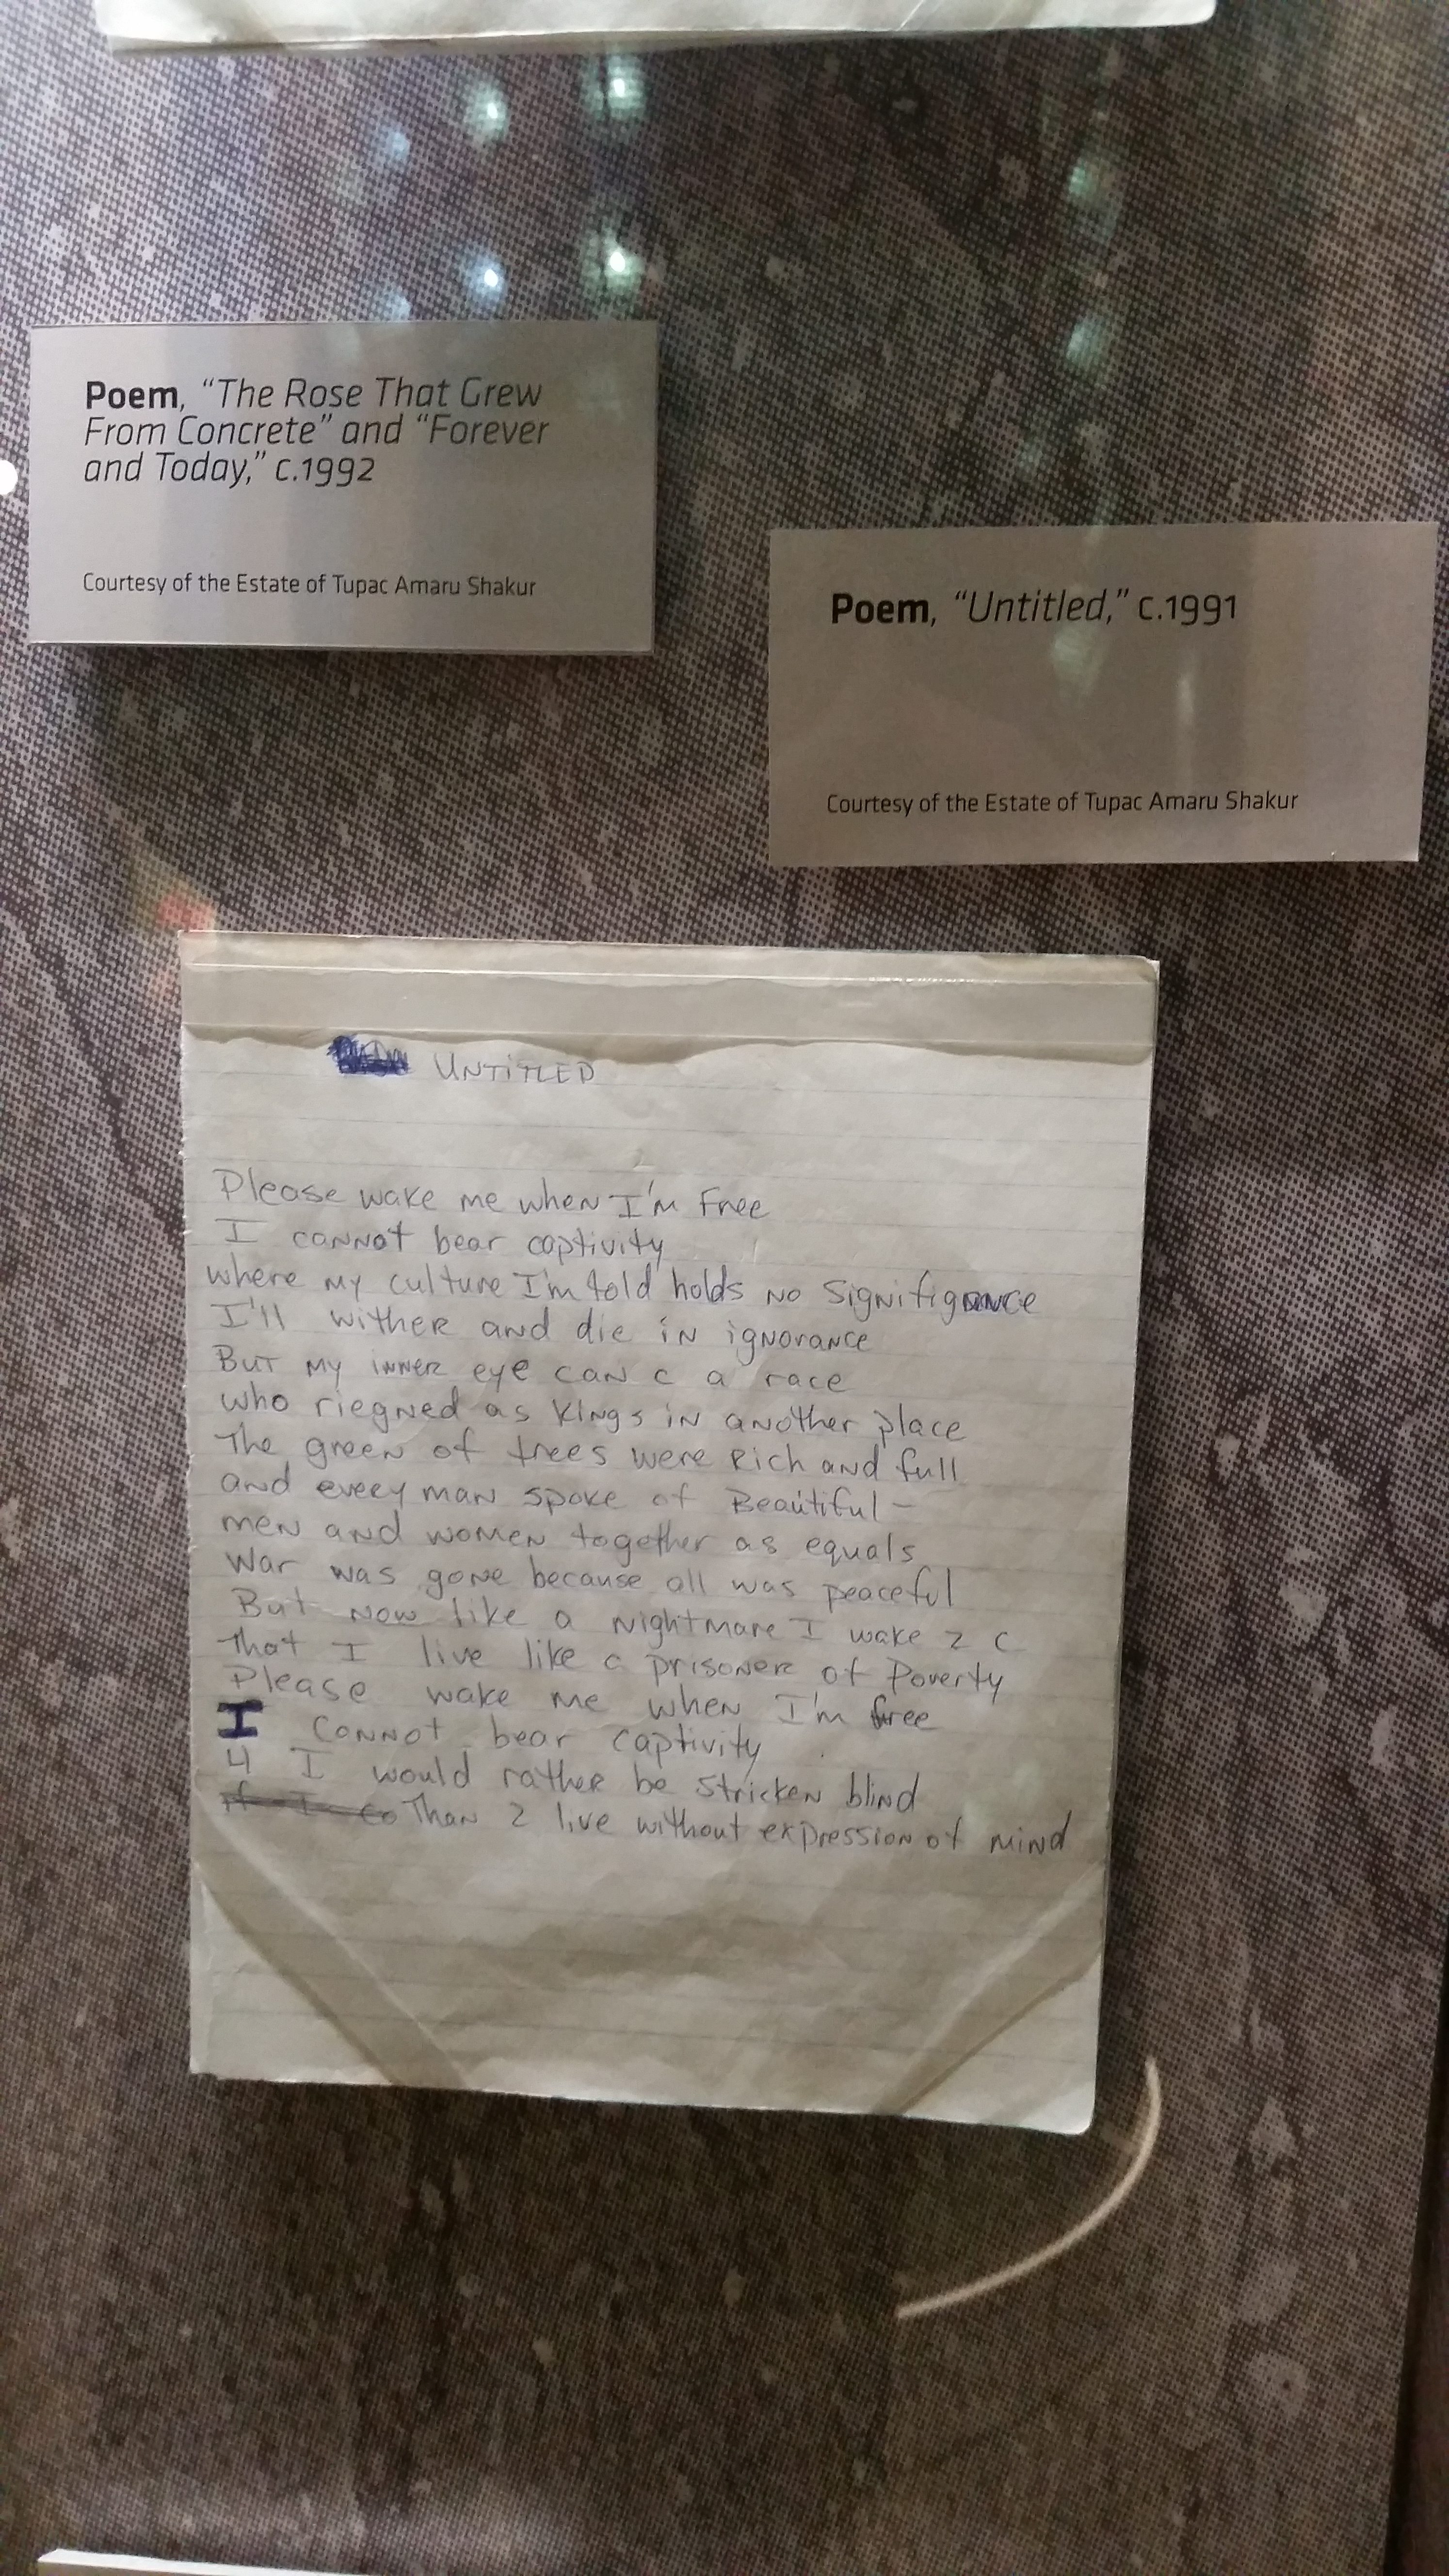 Poem, “The Rose That Grew
From Concrete” and “Forever
and Today,” c.1992
Courtesy of the Estate of Tupac Amaru Shakur
Poem, “Untitled,” c.1991
Courtesy of the Estate of Tupac Amaru Shakur
UNTITLED
Please wake me when I'm Free
I cannot bear captivity
where my culture I'm told holds no signifigance
I'll wither and die in ignorance
But my inner eye can c a race
who riegned as kings in another place
The green of trees were Rich and full
and every man spoke of Beautiful -
men and women together as equals
War was gone because all was peaceful
But now like a nightmare I wake 2 c
That I live like a prisoner of Poverty
Please wake me when I'm free
I cannot bear captivity
4 I would rather be stricken blind
Than 2 live without expression of mind